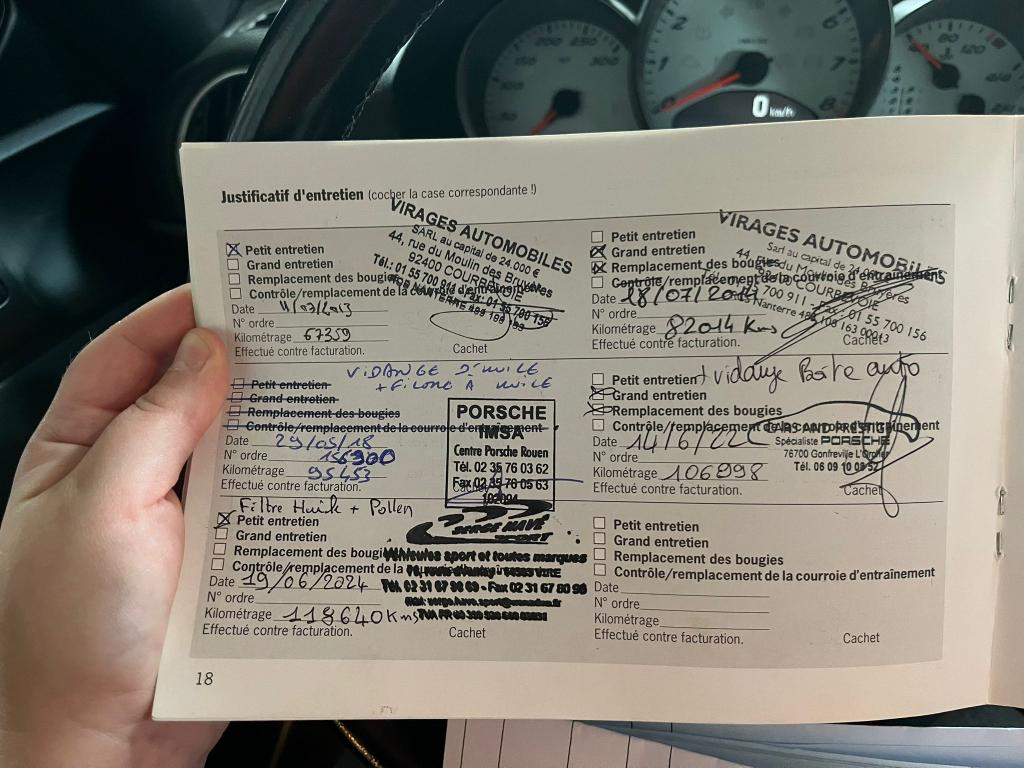 0 km/h
Justificatif d'entretien (cocher la case correspondante !)
Petit entretien
Grand entretien
Remplacement des bougies
Contrôle/remplacement de la courroie d'entraînement
Date 11/03/2013
N° ordre
Kilométrage 67359
Effectué contre facturation.
Cachet
VIRAGES AUTOMOBILES
SARL au capital de 24.000 €
44, rue du Moulin des Bruyères
92400 COURBEVOIE
Tél.: 01 55 700 911 - Fax: 01 55 700 156
Petit entretien
Grand entretien
Remplacement des bougies
Contrôle/remplacement de la courroie d'entraînement
Date 18/07/2014
N° ordre
Kilométrage 82014 Kms
Effectué contre facturation.
Cachet
VIRAGES AUTOMOBILES
Sarl au capital de 24.000
COURBEVOIE
700 911 - Fax: 01 55 700 156
VIDANGE D'HUILE
+ FILTRE A HUILE
Petit entretien
Grand entretien
Remplacement des bougies
Contrôle/remplacement de la courroie d'entraînement
Date 29/05/18
N° ordre
Kilométrage 95453
Effectué contre facturation.
Cachet
PORSCHE
IMSA
Centre Porsche Rouen
Tél. 02 35 76 03 62
Fax 02 35 76 05 63
Petit entretien + vidange Boite auto
Grand entretien
Remplacement des bougies
Contrôle/remplacement de la courroie d'entraînement
Date 14/6/22
N° ordre
Kilométrage 106998
Effectué contre facturation.
Cachet
CARS AND PRESTIGE
Spécialiste PORSCHE
76700 Gonfreville L'Orcher
Tél. 06 09 10 08 52
Filtre Huile + Pollen
Petit entretien
Grand entretien
Remplacement des bougies
Contrôle/remplacement de la
Date 19/06/2024
N° ordre
Kilométrage 118640 Kms
Effectué contre facturation.
Cachet
SERGE HAVÉ
SPORT
Véhicules sport et toutes marques
Tél. 02 31 67 98 69 - Fax 02 31 67 80 98
Petit entretien
Grand entretien
Remplacement des bougies
Contrôle/remplacement de la courroie d'entraînement
Date
N° ordre
Kilométrage
Effectué contre facturation.
Cachet
18